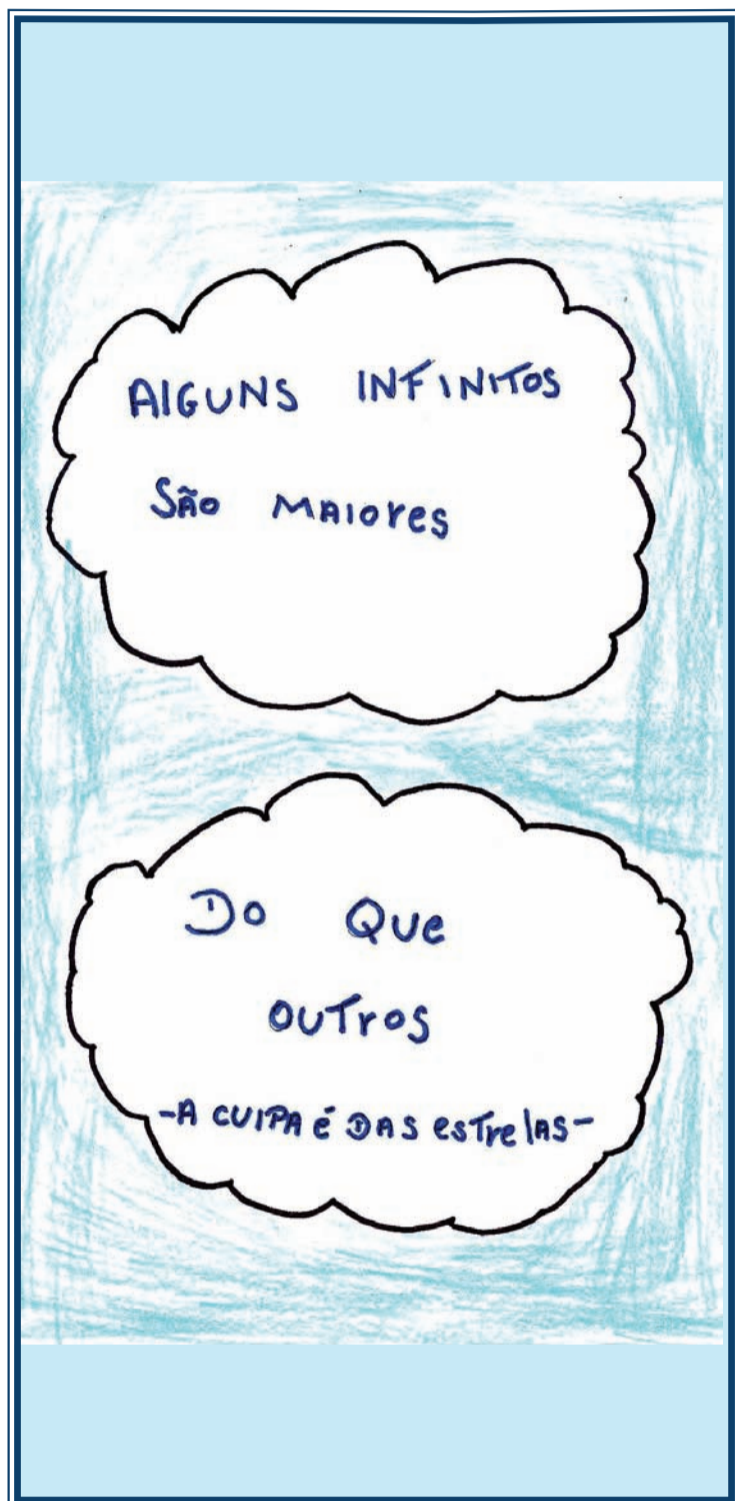 ALGUNS INFINITOS
SÃO MAIOres
Do Que
OUTrOS
-A CULPA é DAS esTrelAS-